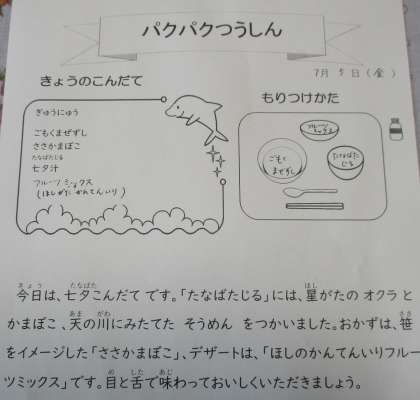 パクパクつうしん
7月5日(金)
きょうのこんだて
ぎゅうにゅう
ごもくまぜずし
ささかまぼこ
たなばたじる
七夕汁
フルーツミックス
(ほしがたかんてんいり)
もりつけかた
フルーツミックス
ごもくまぜずし
たなばたじる
きょう たなばた ほし
今日は、七夕こんだて です。「たなばたじる」には、星がたの オクラ と
あま がわ ささ
かまぼこ、天の川にみたてた そうめん をつかいました。おかずは、笹
をイメージした「ささかまぼこ」、デザートは、「ほしのかんてんいりフルー
め した あじ
ツミックス」です。目と舌で味わっておいしくいただきましょう。